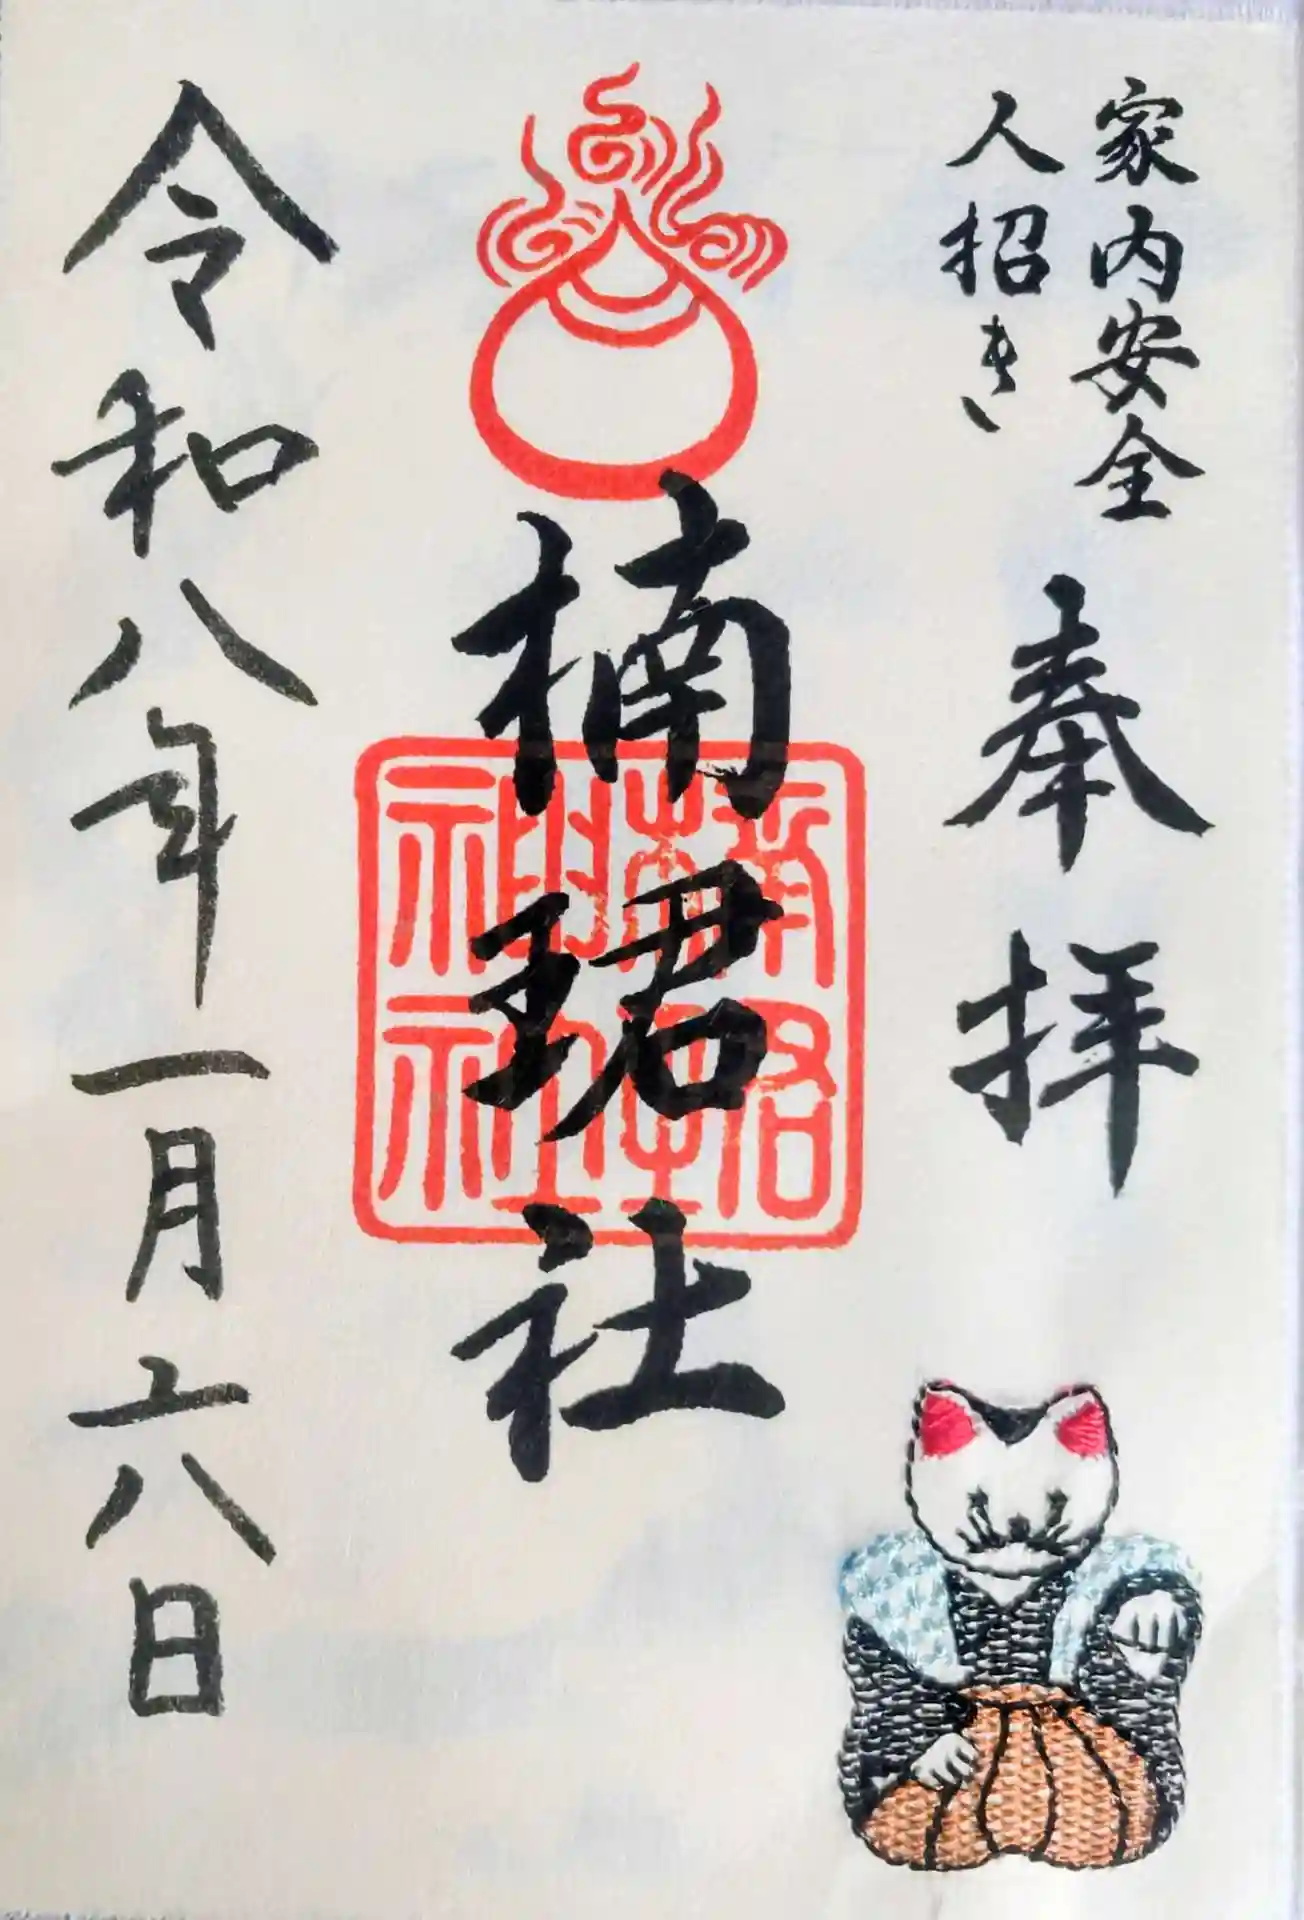 家内安全
人招き
奉拝
楠珺社
神社
令和八年一月六日